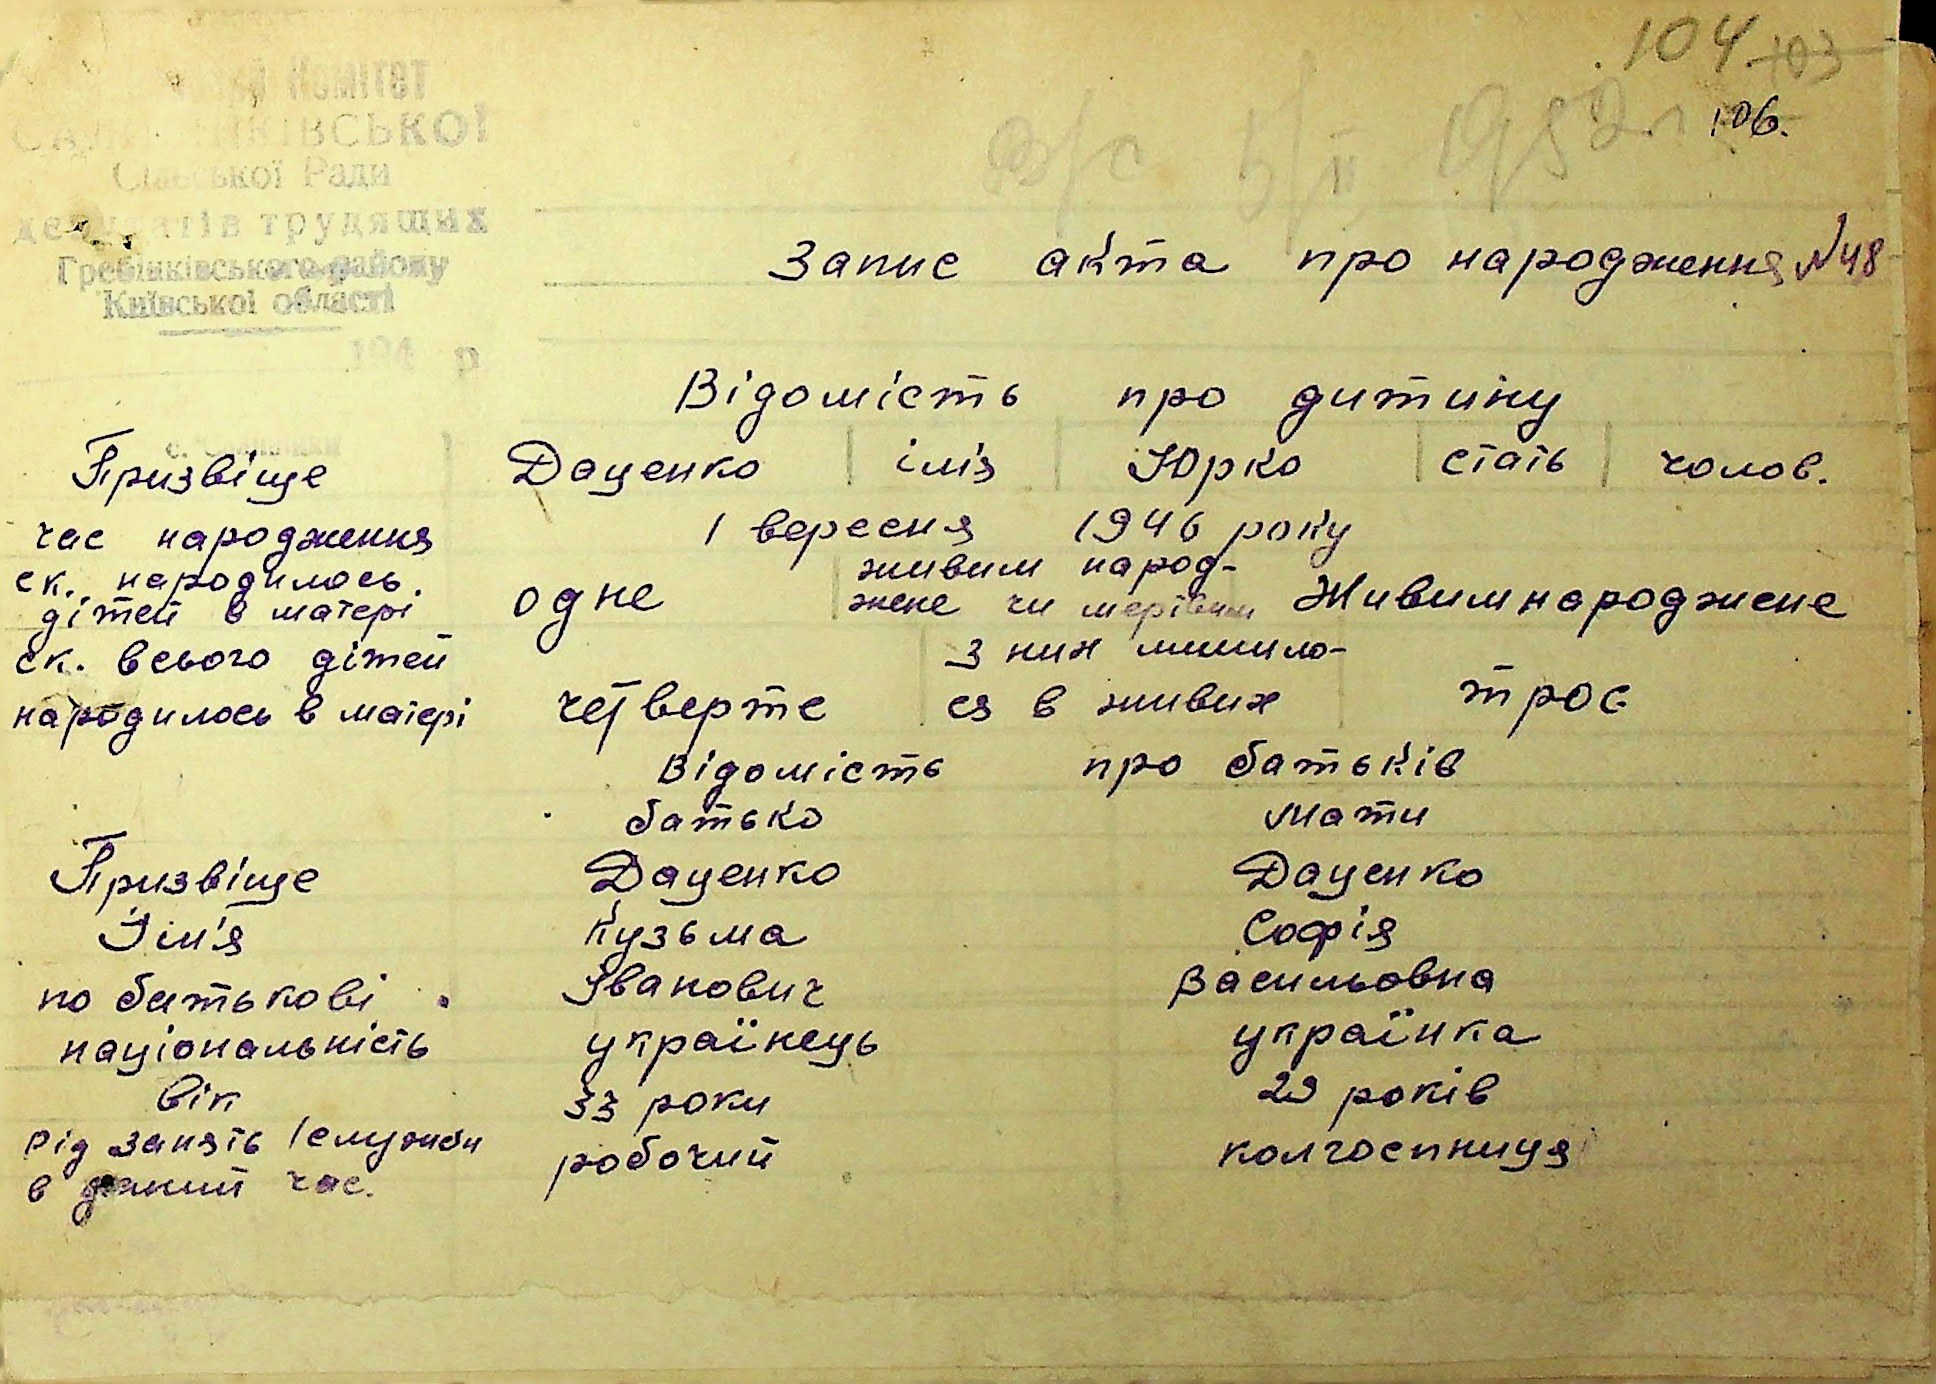 104 103
106.
Комітет
Сільської Ради
депутатів трудящих
Гребінківського району
Київської області
194 р
Запис акта про народження №48
Відомість про дитину
Призвіще Даценко ім'я Юрко стать чолов.
час народження 1 вересня 1946 року
ск. народилось дітей в матері одне живим народ-жене чи мертвим Живимнароджене
ск. всього дітей народилось в матері четверте з них лишило-ся в живих троє
Відомість про батьків
батько мати
Призвіще Даценко Даценко
Ім'я Кузьма Софія
по батькові Іванович Васильовна
національність українець українка
вік 33 роки 29 років
рід занять /служби в даний час. робочий колгоспниця